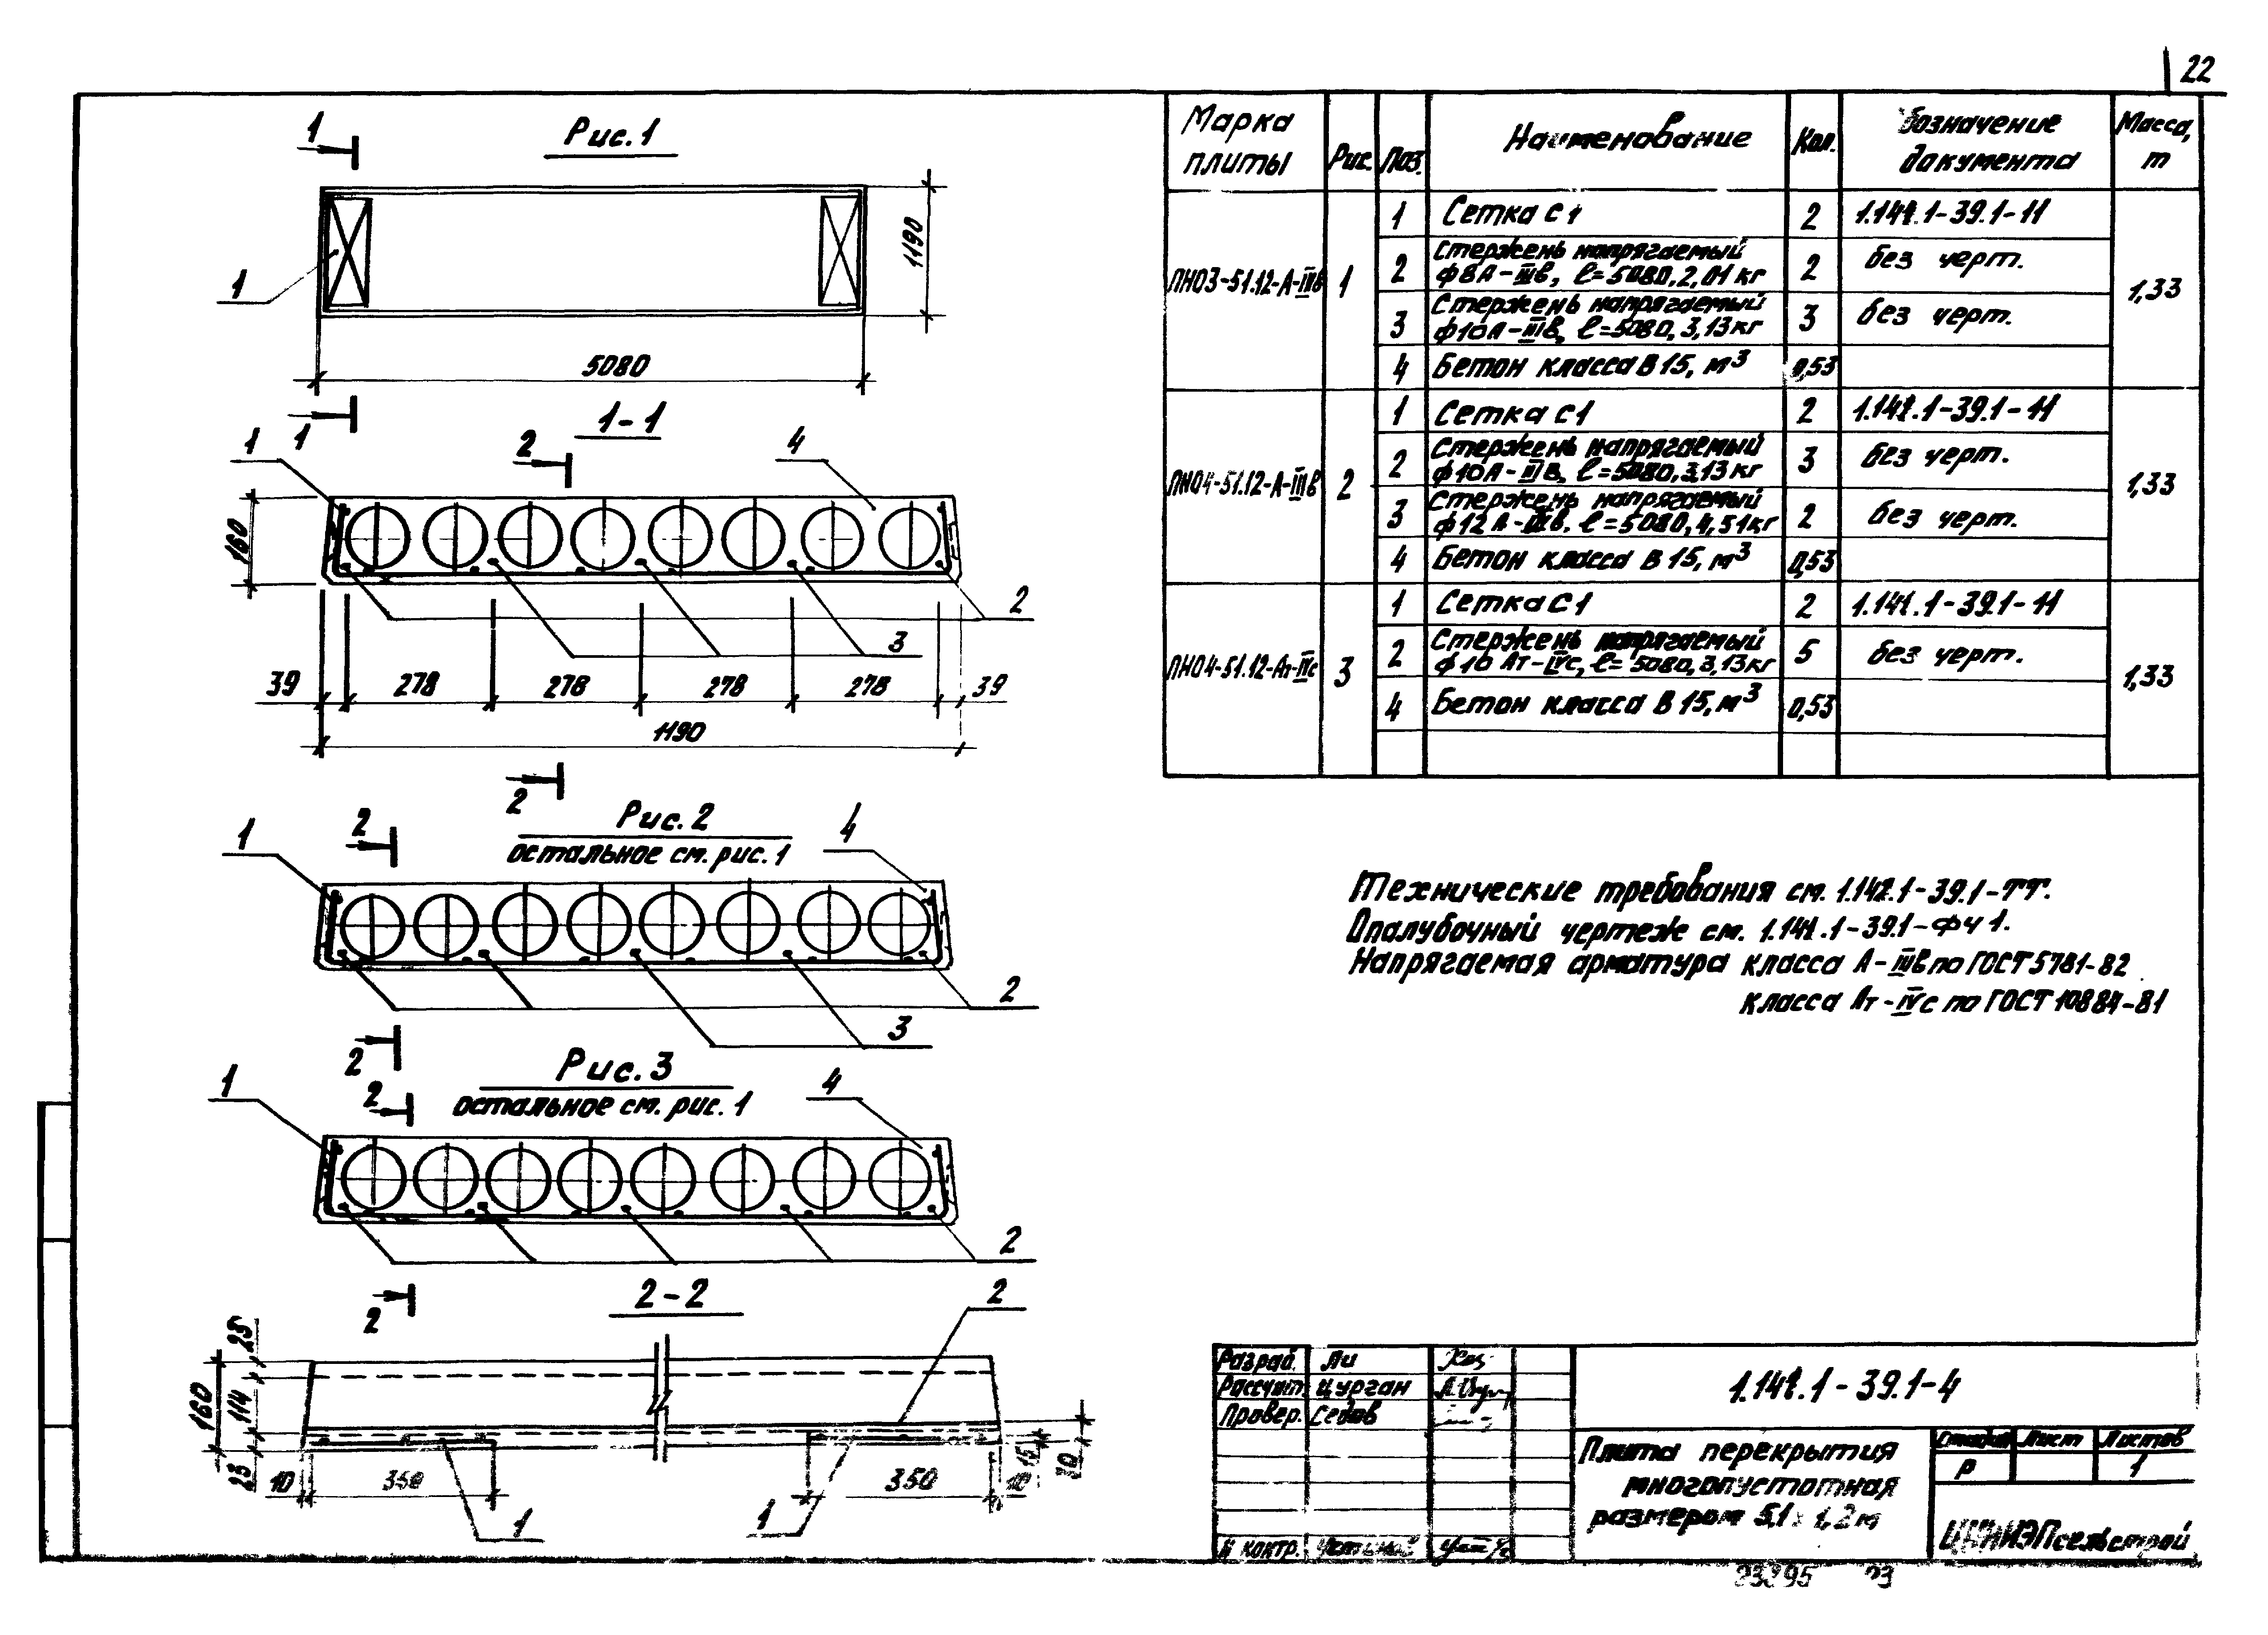 22
Рис. 1
1
1
1190
5080
1
1-1
1
2
4
160
2
3
39
278
278
278
278
39
1190
2
Рис. 2
остальное см. рис. 1
1
2
4
2
3
2
Рис. 3
остальное см. рис. 1
1
2
4
2
2
2-2
2
160
23
114
23
10
350
350
10
15
20
1
1
Марка плиты
Рис.
Поз.
Наименование
Кол.
Обозначение документа
Масса, т
ПНО3-51.12-А-IIIв
1
1,33
1 Сетка С1 2 1.141.1-39.1-11
2 Стержень напрягаемый
ф8А-IIIв, ℓ=5080, 2,01 кг 2 без черт.
3 Стержень напрягаемый
ф10А-IIIв, ℓ=5080, 3,13 кг 3 без черт.
4 Бетон класса В15, м³ 0,53
ПНО4-51.12-А-IIIв
2
1,33
1 Сетка С1 2 1.141.1-39.1-11
2 Стержень напрягаемый
ф10А-IIIв, ℓ=5080, 3,13 кг 3 без черт.
3 Стержень напрягаемый
ф12А-IIIв, ℓ=5080, 4,51 кг 2 без черт.
4 Бетон класса В15, м³ 0,53
ПНО4-51.12-Ат-IVс
3
1,33
1 Сетка С1 2 1.141.1-39.1-11
2 Стержень напрягаемый
ф10 Ат-IVс, ℓ=5080, 3,13 кг 5 без черт.
4 Бетон класса В15, м³ 0,53
Технические требования см. 1.141.1-39.1-ТТ.
Опалубочный чертеж см. 1.141.1-39.1-ФЧ 1.
Напрягаемая арматура класса А-IIIв по ГОСТ 5781-82
класса Ат-IVс по ГОСТ 10884-81
Разраб. Ли
Рассчит. Цурган
Провер. Седов
Н контр.
1.141.1-39.1-4
Плита перекрытия
многопустотная
размером 5,1×1,2 м
Стадия Лист Листов
Р 1
ЦНИИЭПсельстрой
23395 23